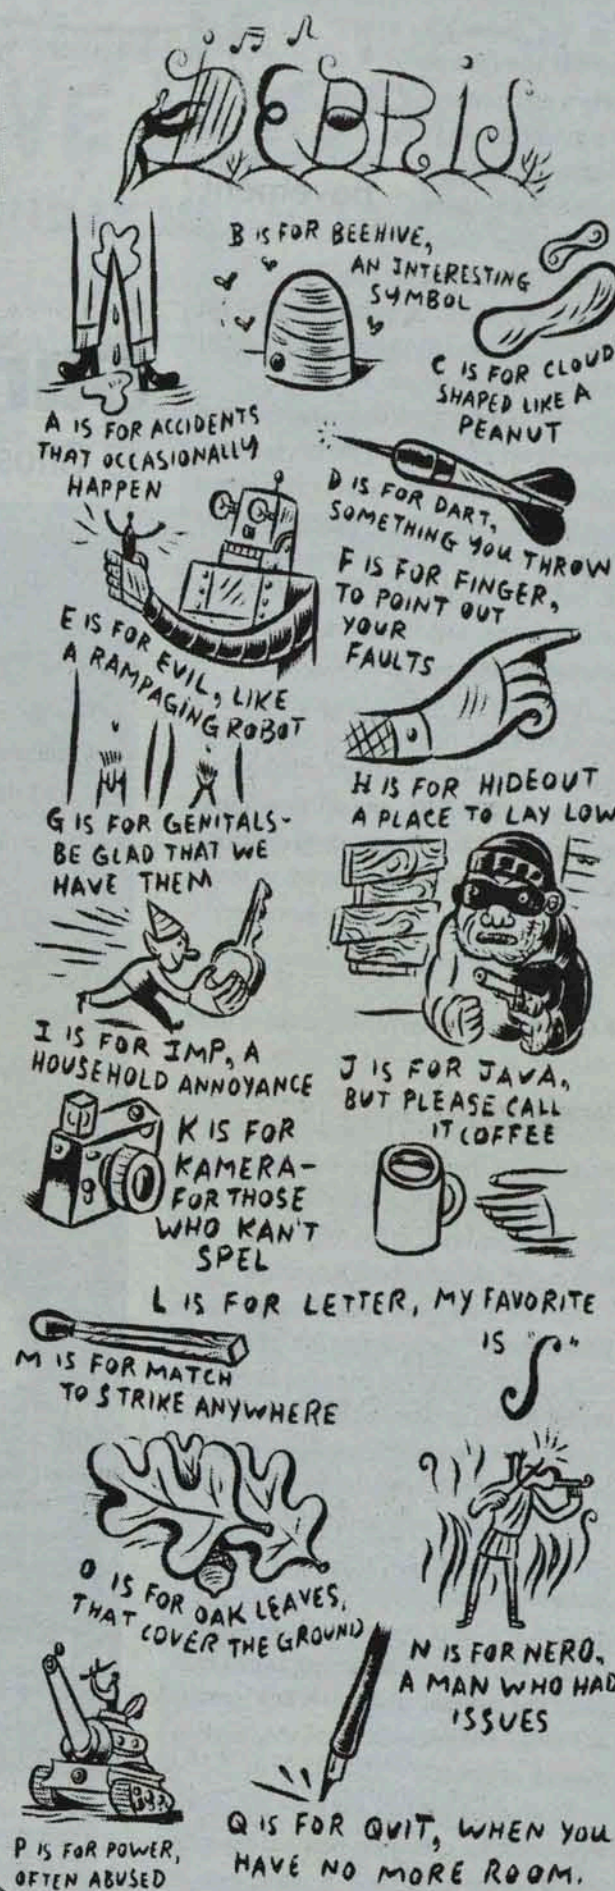 DEBRIS
A IS FOR ACCIDENTS
THAT OCCASIONALLY
HAPPEN
B IS FOR BEEHIVE,
AN INTERESTING
SYMBOL
C IS FOR CLOUD
SHAPED LIKE A
PEANUT
D IS FOR DART,
SOMETHING YOU THROW
E IS FOR EVIL, LIKE
A RAMPAGING ROBOT
F IS FOR FINGER,
TO POINT OUT
YOUR
FAULTS
G IS FOR GENITALS-
BE GLAD THAT WE
HAVE THEM
H IS FOR HIDEOUT
A PLACE TO LAY LOW
I IS FOR IMP, A
HOUSEHOLD ANNOYANCE
J IS FOR JAVA,
BUT PLEASE CALL
IT COFFEE
K IS FOR
KAMERA-
FOR THOSE
WHO KAN'T
SPEL
L IS FOR LETTER, MY FAVORITE
IS "S"
M IS FOR MATCH
TO STRIKE ANYWHERE
N IS FOR NERO,
A MAN WHO HAD
ISSUES
O IS FOR OAK LEAVES,
THAT COVER THE GROUND
P IS FOR POWER,
OFTEN ABUSED
Q IS FOR QUIT, WHEN YOU
HAVE NO MORE ROOM.